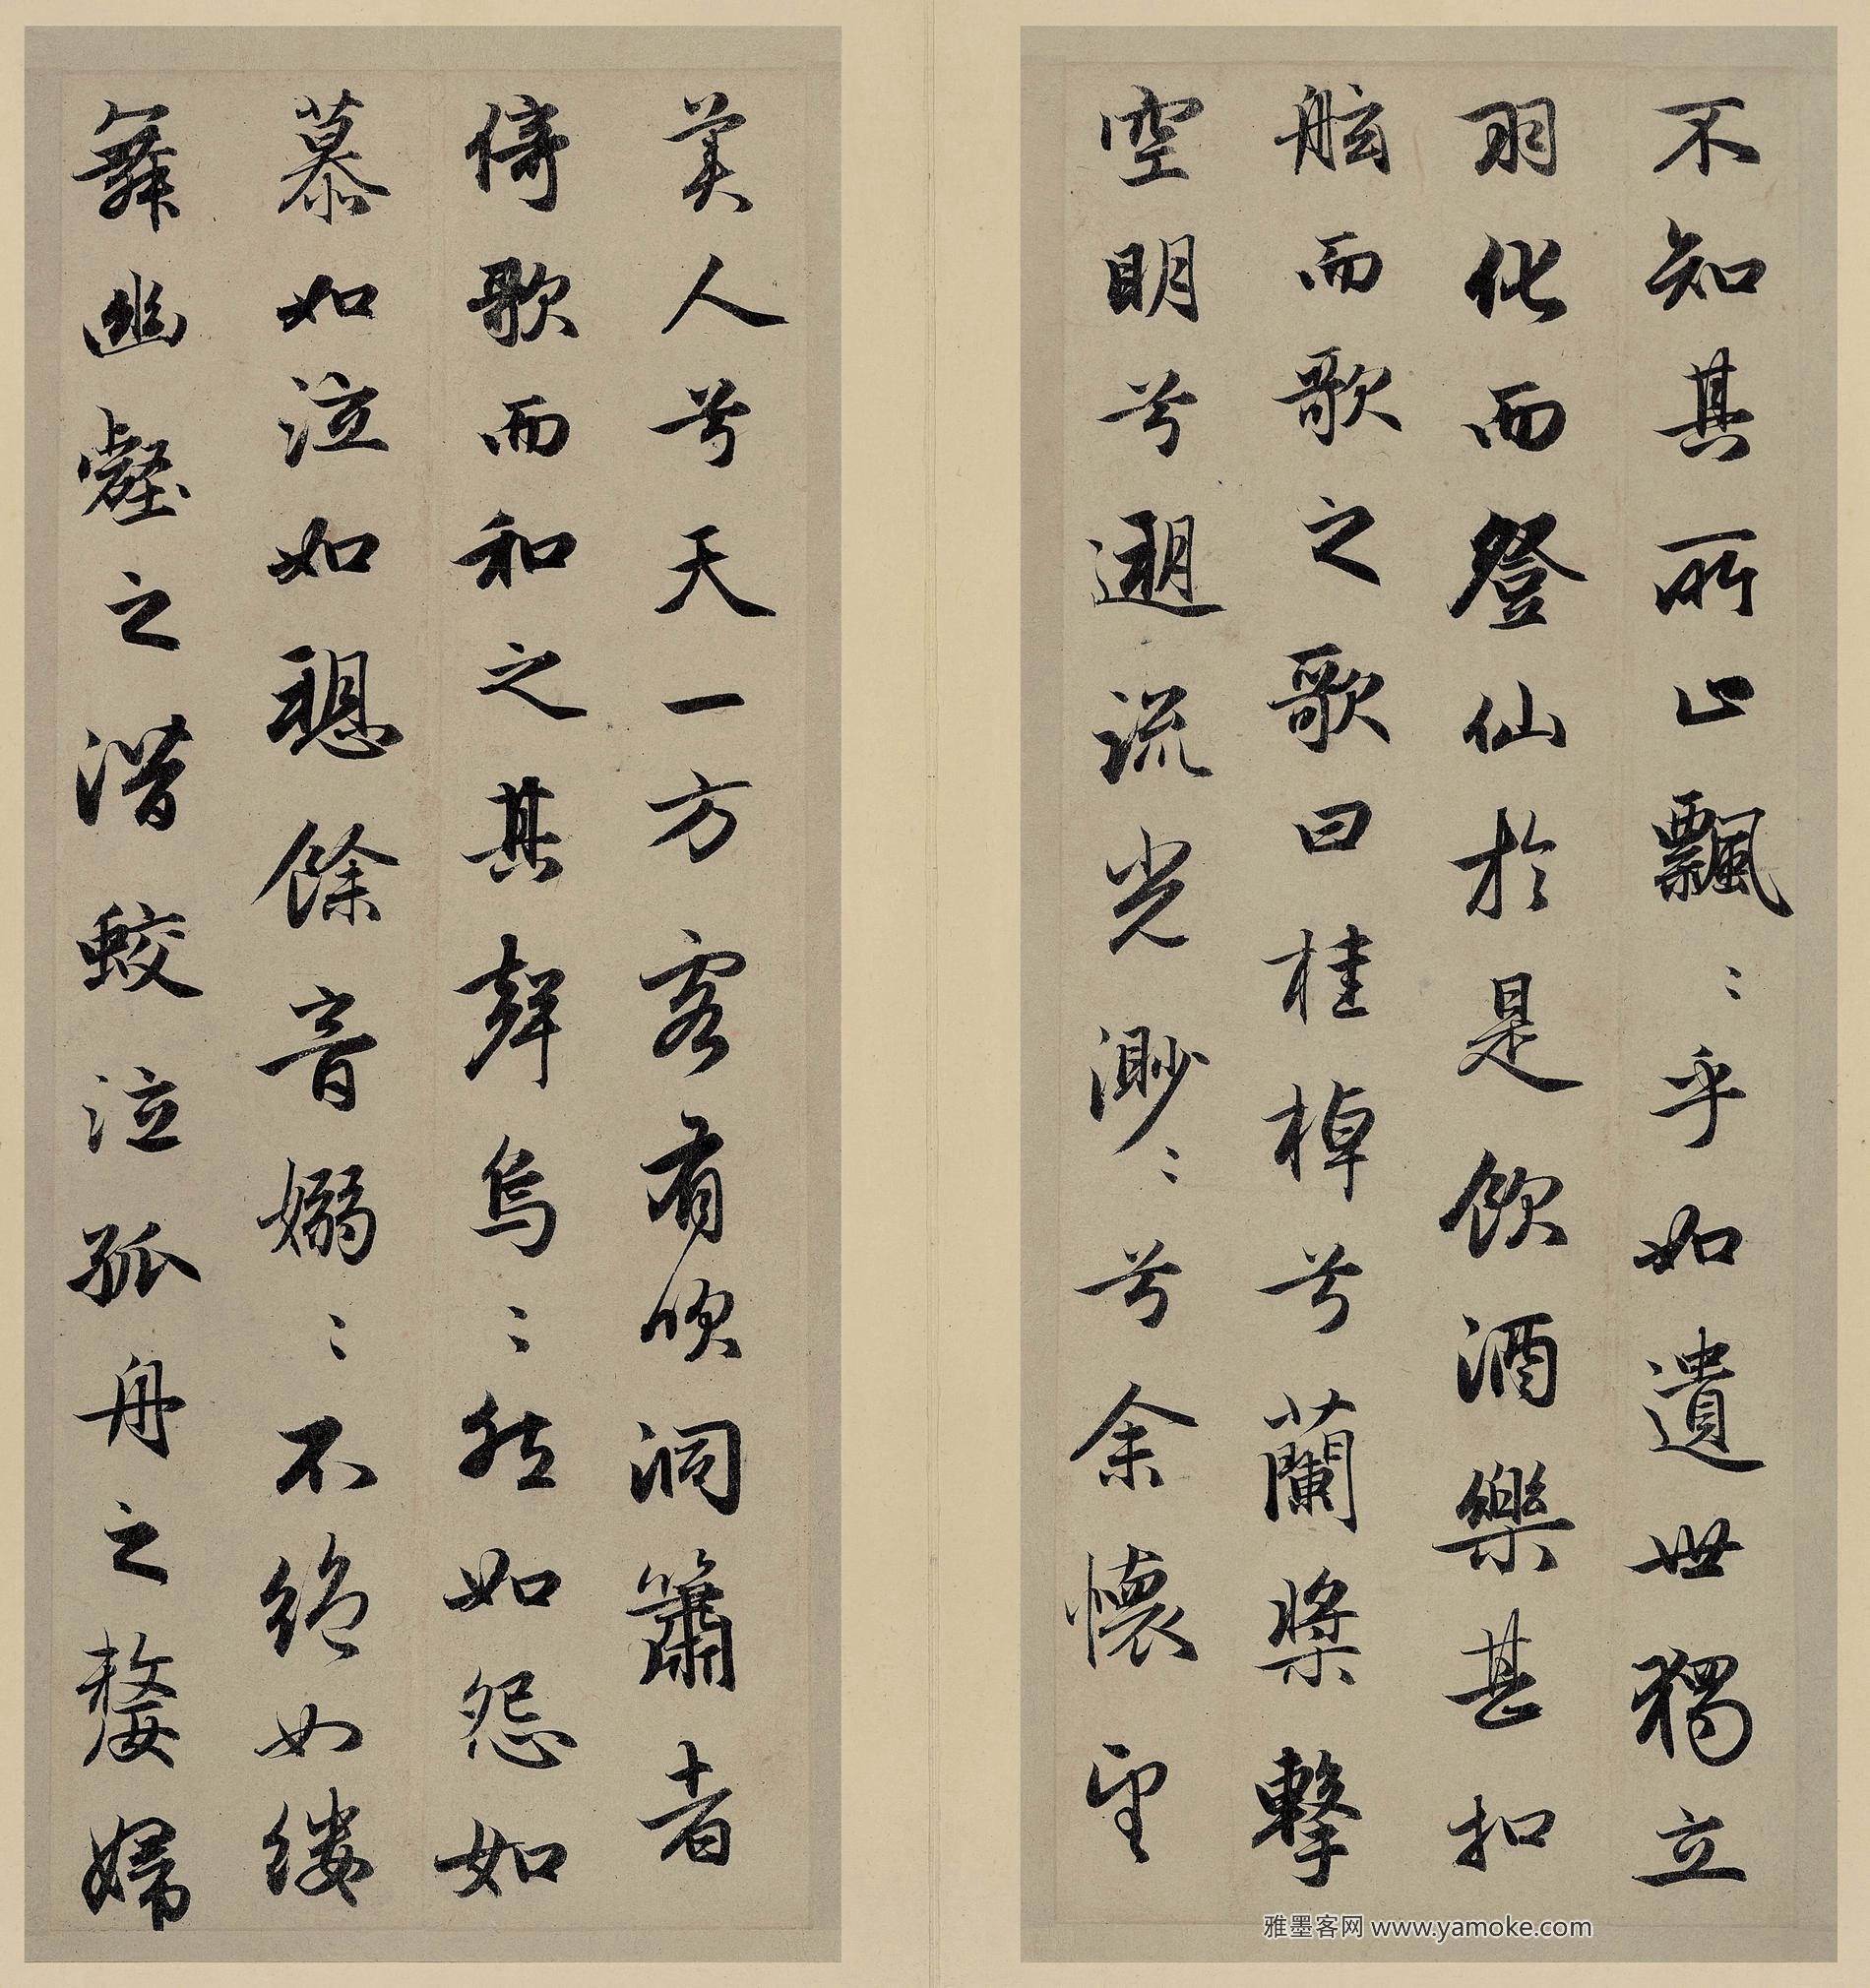 不知其所止飄〻乎如遺世獨立
羽化而登仙於是飲酒樂甚扣
舷而歌之歌曰桂棹兮蘭槳擊
空明兮遡流光渺〻兮余懷望
美人兮天一方客有吹洞簫者
倚歌而和之其聲烏〻然如怨如
慕如泣如愬餘音嫋〻不絕如縷
舞幽壑之潛蛟泣孤舟之嫠婦
雅墨客网 www.yamoke.com